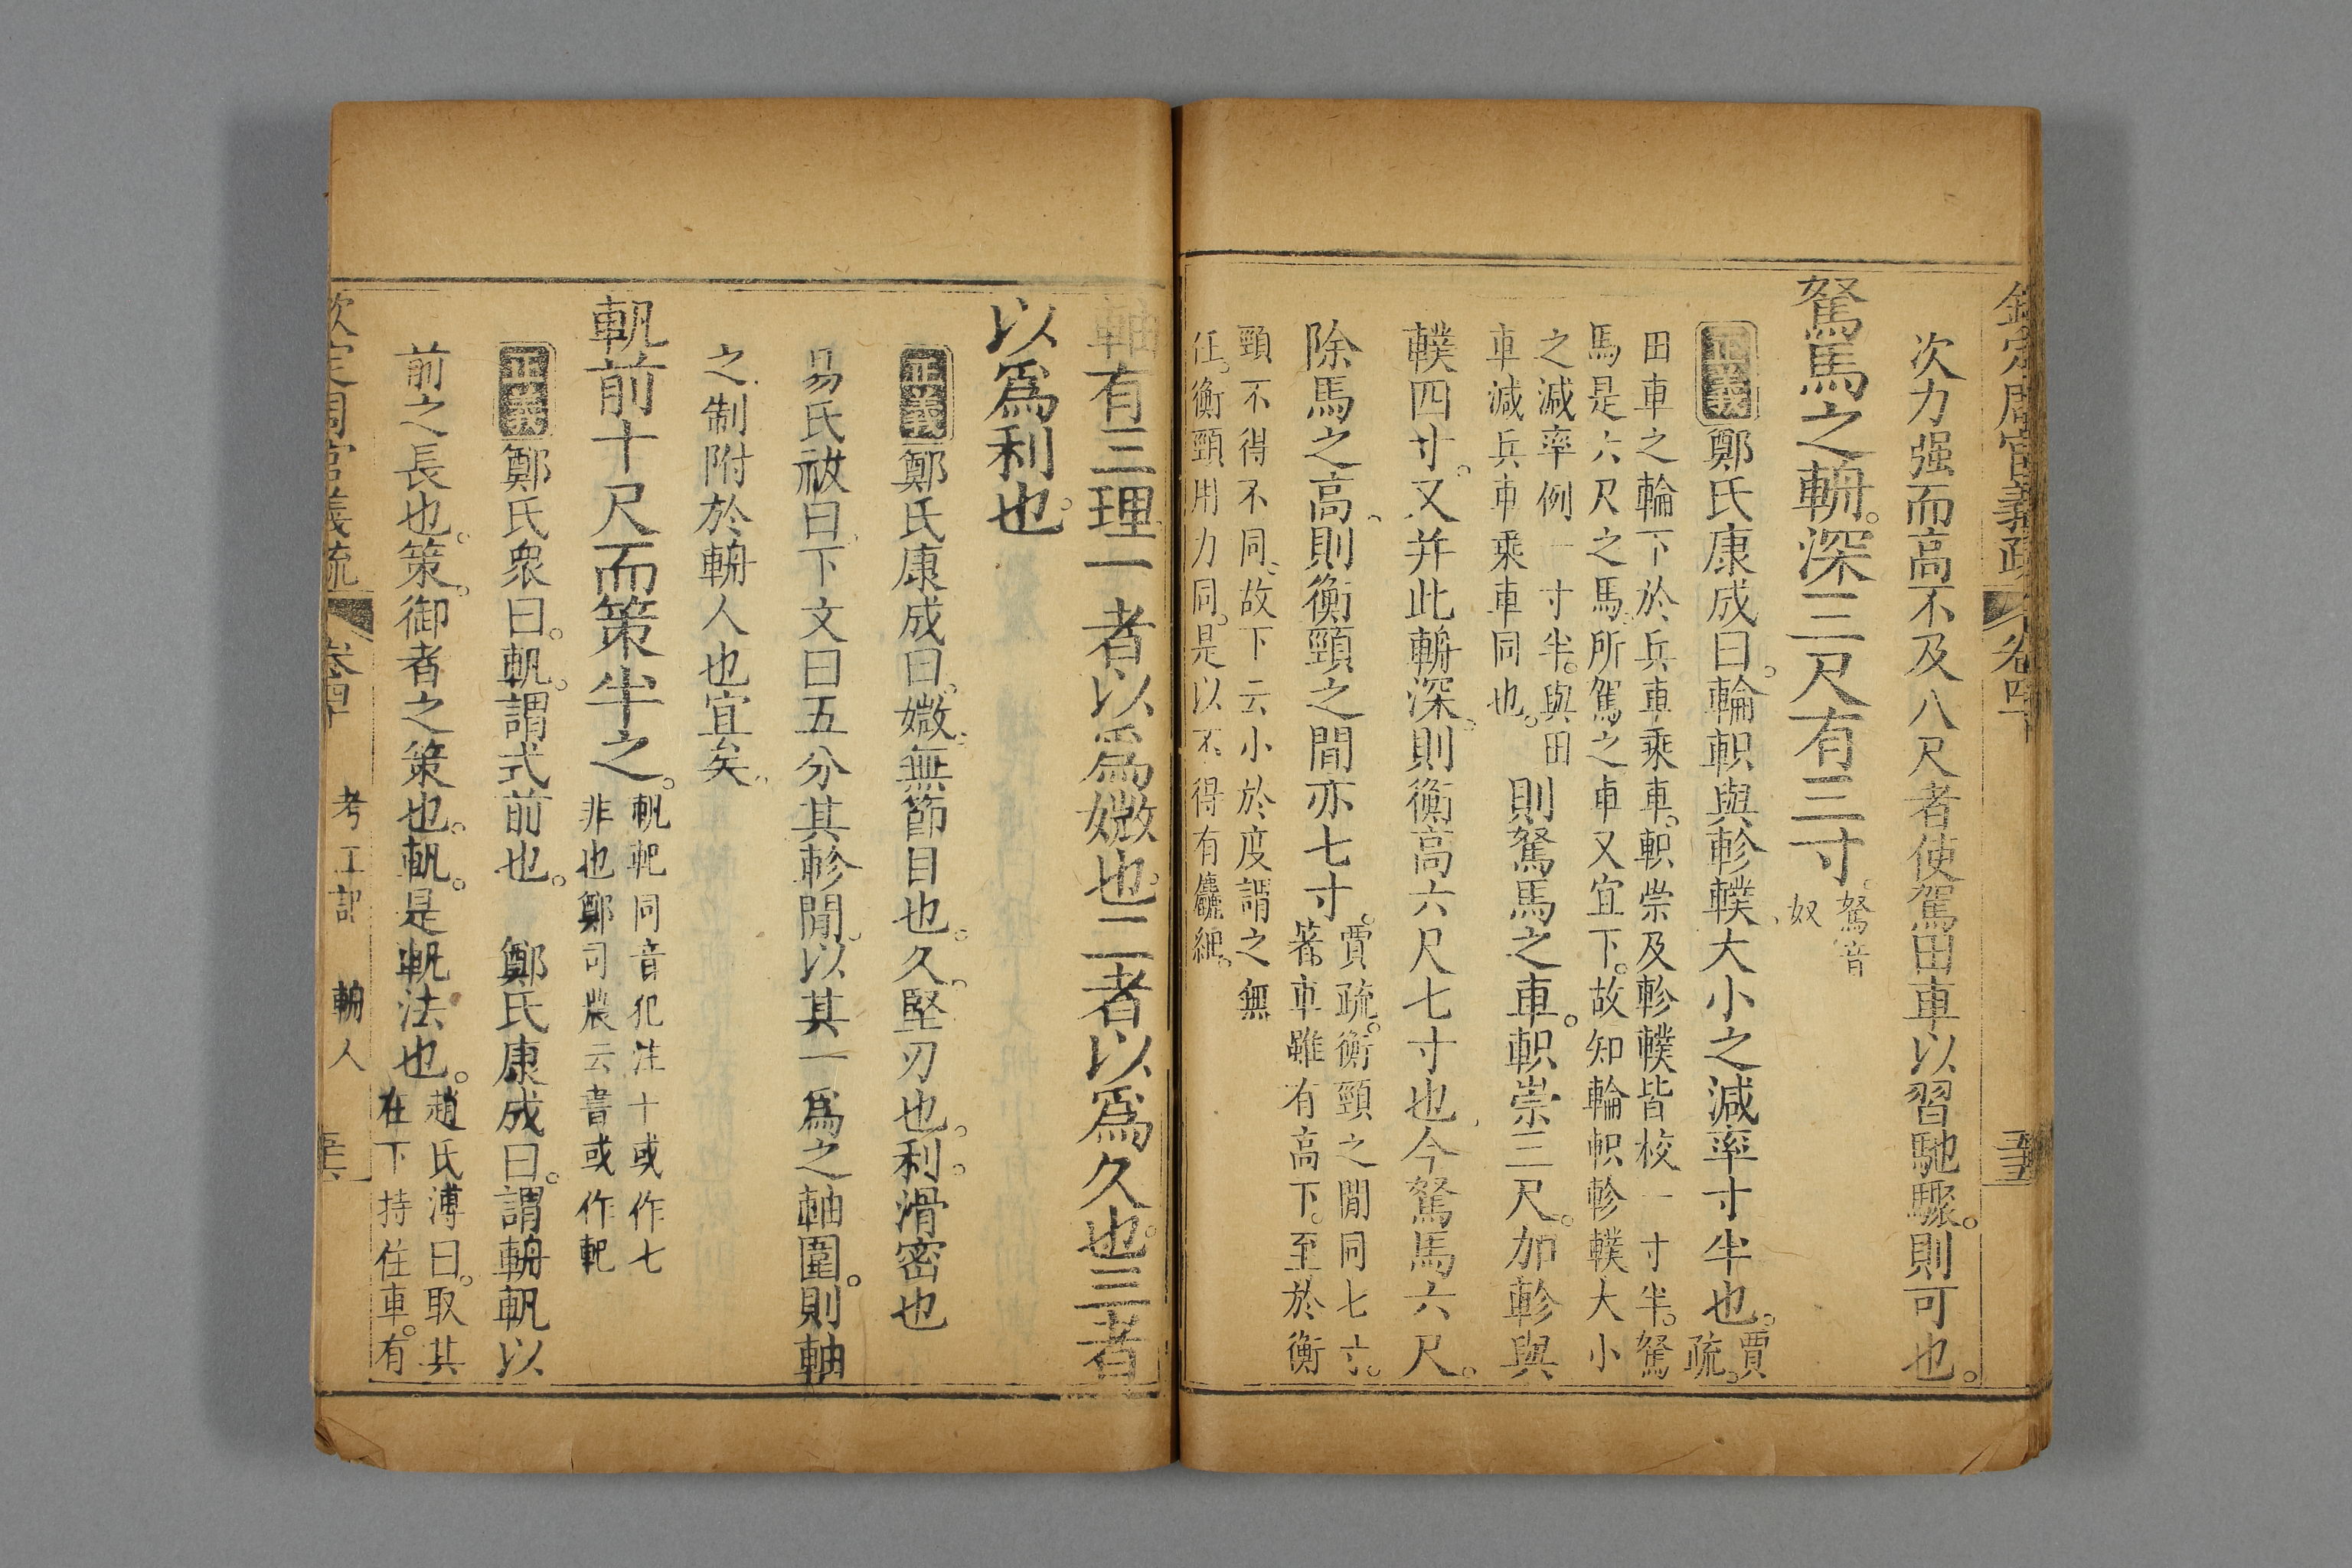 欽定周官義疏 卷四十 三五
次力强而高不及八尺者使駕田車以習馳驟。則可也。
駑馬之輈。深三尺有三寸。駑音
奴
正義鄭氏康成曰。輪軹與軫轐大小之減率寸半也。賈
疏。
田車之輪下於兵車乘車。軹崇及軫轐皆校一寸半。駑
馬是六尺之馬。所駕之車又宜下。故知輪軹軫轐大小
之減率例一寸半。與田
車減兵車乘車同也。
則駑馬之車。軹崇三尺。加軫與
轐四寸。又并此輈深。則衡高六尺七寸也。今駑馬六尺。
除馬之高。則衡頸之間亦七寸。賈疏。衡頸之閒同七寸。
著車雖有高下。至於衡
頸不得不同。故下云小於度謂之無
任。衡頸用力同。是以不得有麤細。
軸有三理。一者以爲媺也。二者以爲久也。三者
以爲利也。
正義鄭氏康成曰。媺。無節目也。久。堅刃也。利。滑密也
易氏祓曰。下文曰五分其軫閒。以其一爲之軸圍。則軸
之制附於輈人也宜矣。
軓前十尺而策半之。軓䡊同音犯注十或作七
非也鄭司農云書或作䡊
正義鄭氏衆曰。軓。謂式前也。 鄭氏康成曰。謂輈軓以
前之長也。策。御者之策也。軓。是軓法也。趙氏溥曰。取其
在下持住車。有
欽定周官義疏 卷四十 考工記 輈人 三六